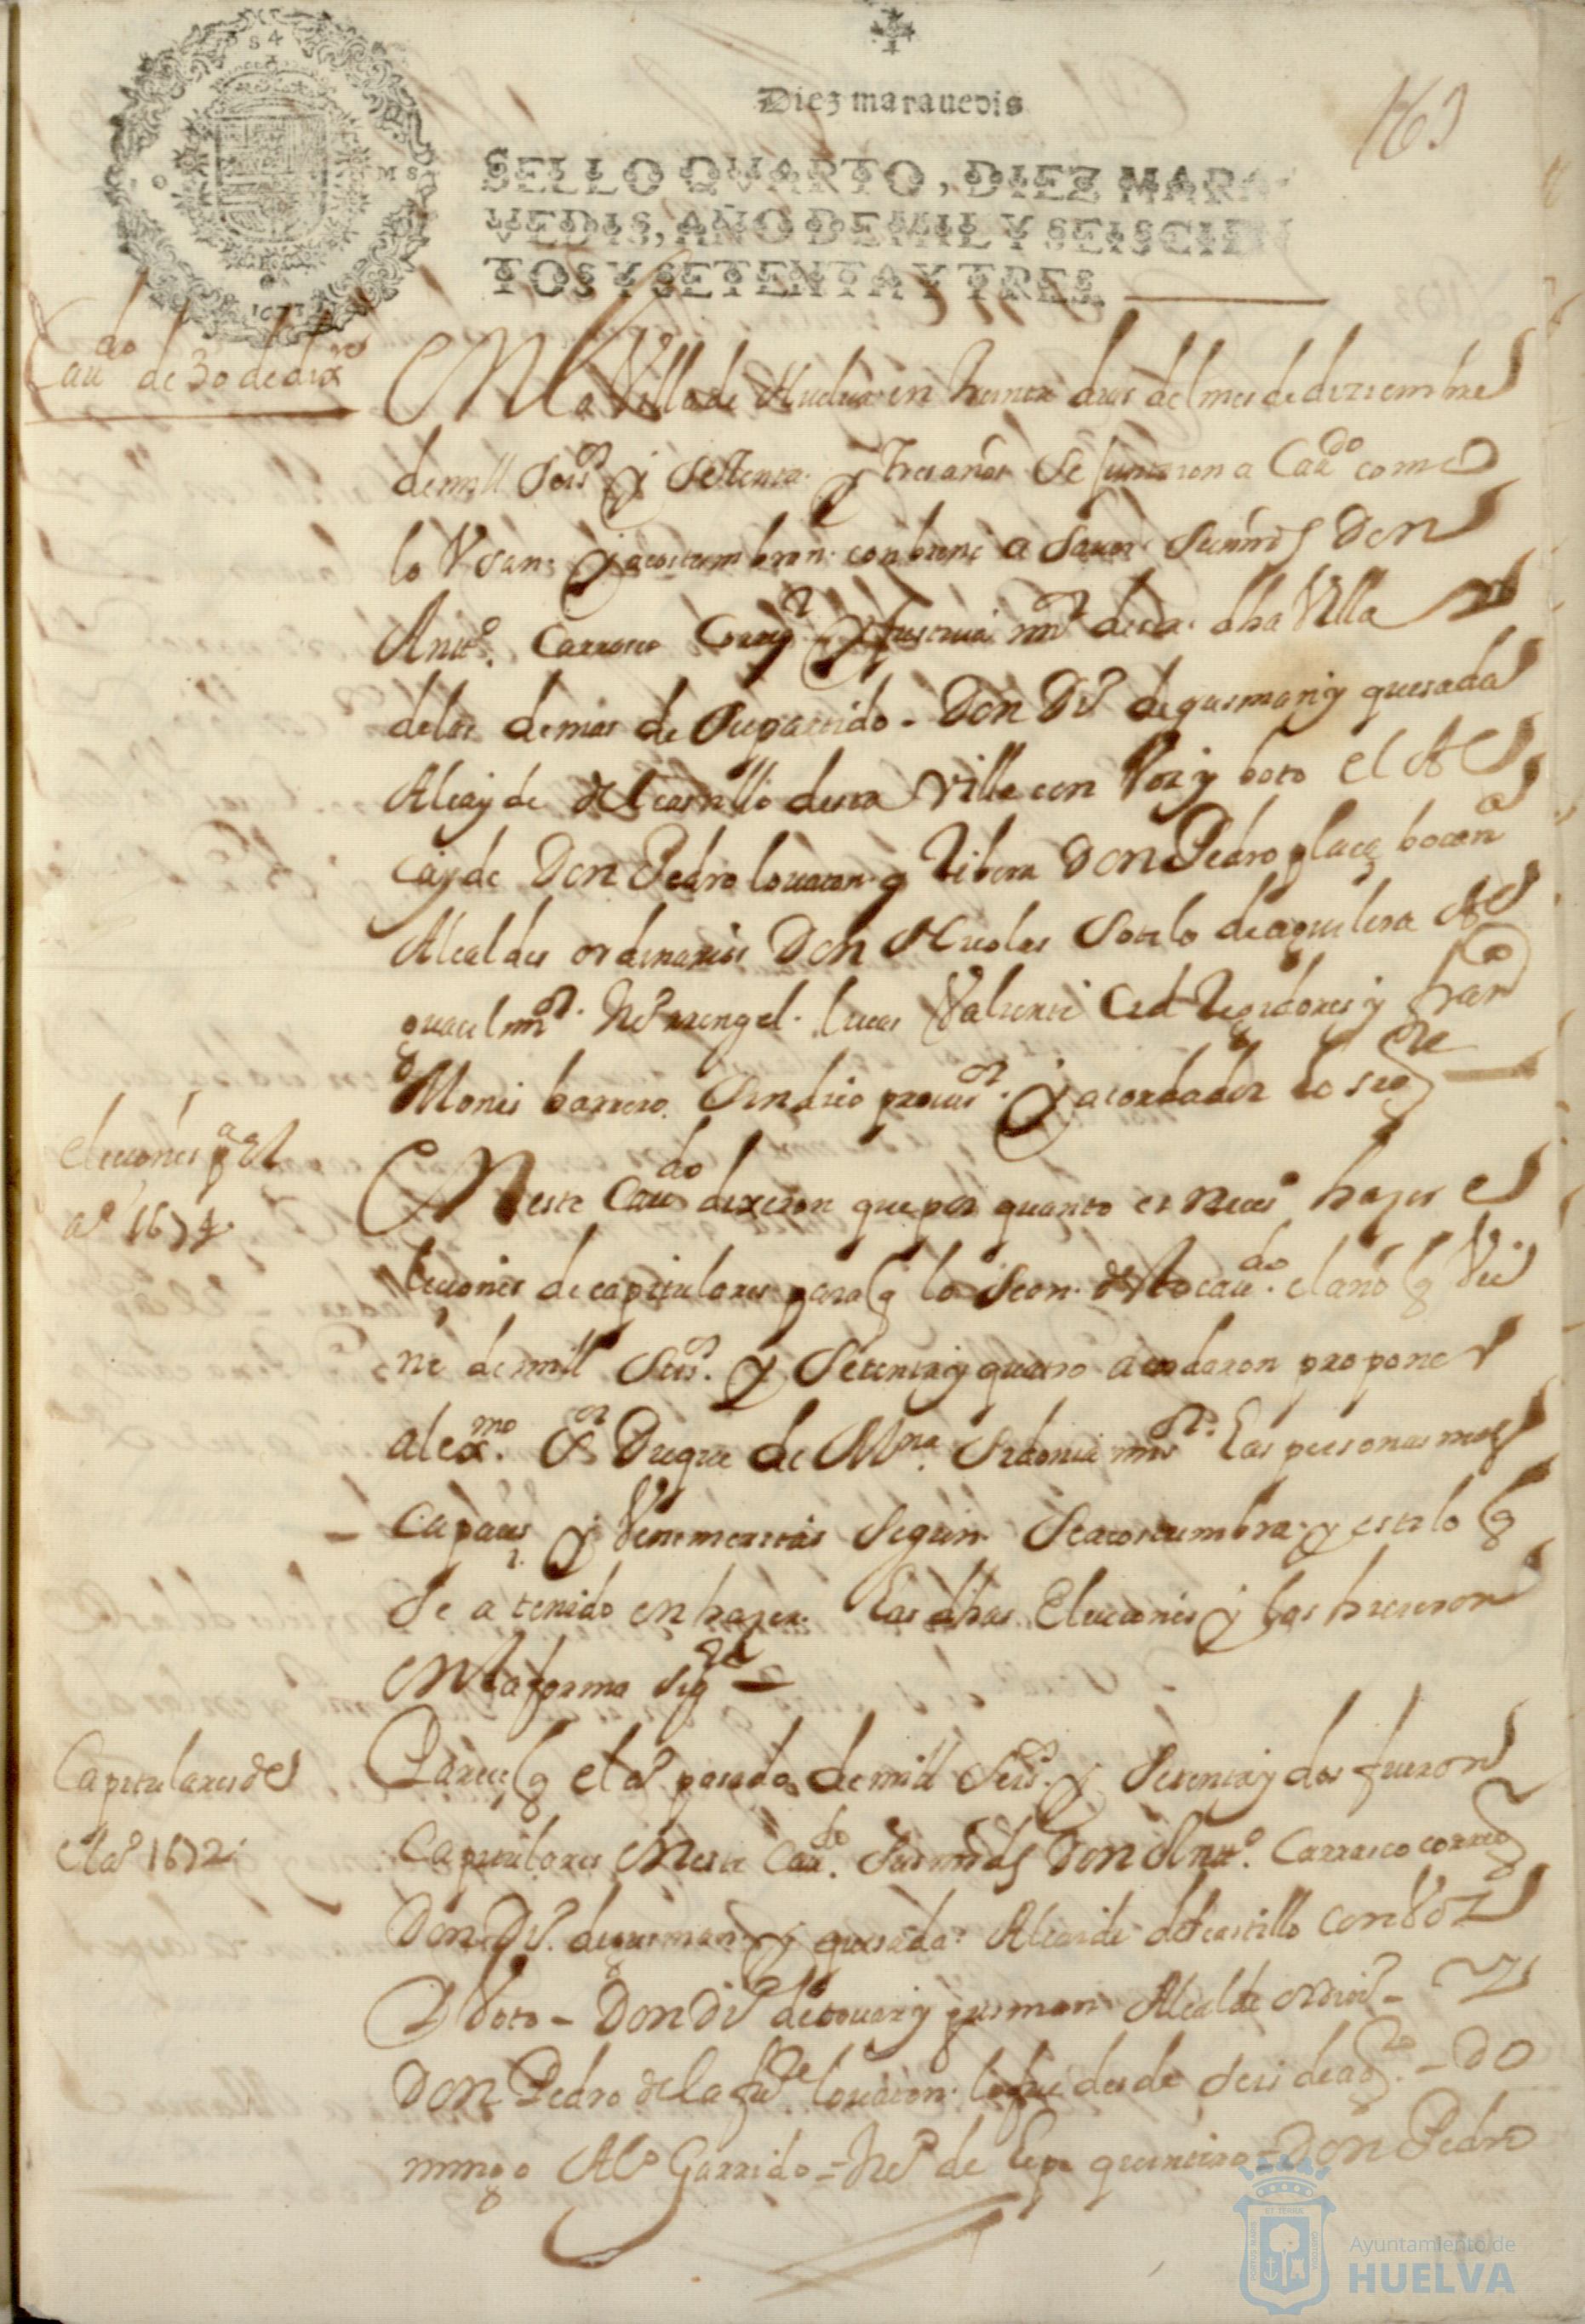 Diez marauedis
163
SELLO QVARTO, DIEZ MARA
VEDIS, AÑO DE MIL Y SEISCIEN
TOS Y SETENTA Y TRES.
Cauᵈᵒ de 30 de dixʳᵉ
En la Villa de Huelua en treinta dias del mes de diziembre
de mill seisᵒˢ y setenta y tres años se juntaron a Cauᵈᵒ como
lo Vsan y acostumbran conbiene a sauer sus mrds Don
Anttº Carrasco Corregᵒʳ y Justicia mᵒʳ desta dha Villa
de los demas de su partido - Don Dº de gusman y quesada
Alcayde del castillo desta villa con Voz y boto el Al
cayde Don Pedro louaton y Ribera Don Pedro
Alcaldes ordinarios Don Nicolas Sotelo de aguilera Al
guacil mᵒʳ rengel lucas Valiente Cid Regidores y franᶜᵒ
Mones barrero Sindico procurᵒʳ y acordado lo sigᵗᵉ
elecciones pᵃ el
aº 1674
En este Cauᵈᵒ dixeron que por quanto es neceº hazer e
lecciones de capitulares para q lo sean deste cauᵈᵒ el año q Vie
ne de mill seisᵒˢ y setenta y quatro acordaron proponer
al exᵐᵒ Sᵒʳ Duque de Mᵈⁿᵃ Sidonia mi Sᵒʳ las personas mas
capaces y Venemeritas segun se acostumbra y estilo q
se a tenido en hazer las dhas Elecciones y las hicieron
en la forma sigᵗᵉ
Capitulares del
el aº 1672
Parece q el aº pasado de mill seisᵒˢ y setenta y dos fueron
capitulares en este Cauᵈᵒ sus mrds Don Anttº Carrasco correg
Don Dº de gusman y quesada Alcaide del castillo con Voz
y Voto - Don Dº de touar y gusman Alcalde ordinº -
Don Pedro de la fuᵗᵉ louaton lo fue desde seis de agᵗᵒ - Do
mingo Alº Garrido = de Lepe quintero = Don Pedro
Ayuntamiento de
HUELVA